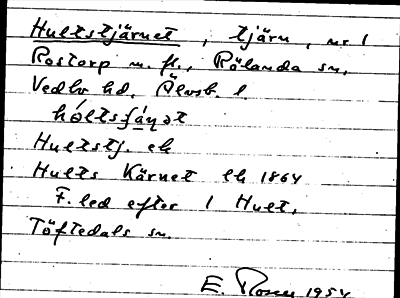 Hultstjärnet, tjärn, nr 1
Rostorp m. fl., Rölanda sn,
Vedbo hd, Älvsb. l.
hóltsʃä́ṇət
Hultstj. ek
Hults Kärnet lk 1864
F. led efter 1 Hult,
Töftedals sn.
E. Rosen 1954